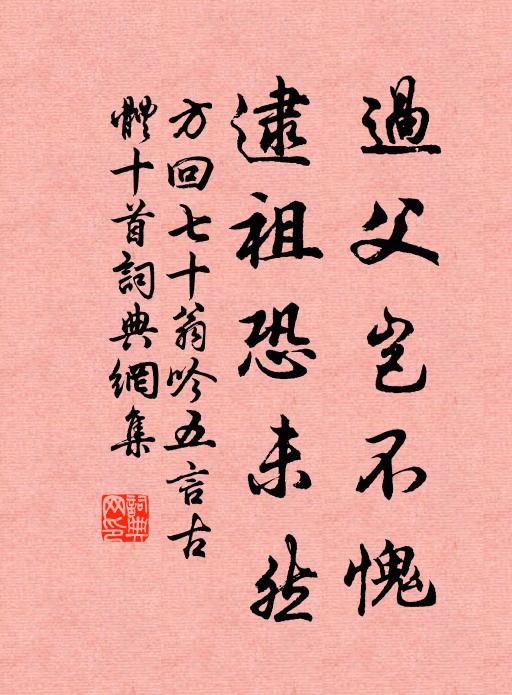 過父豈不愧
逮祖恐未然
方回七十翁吟五言古
體十首詞典網集
詞典網印